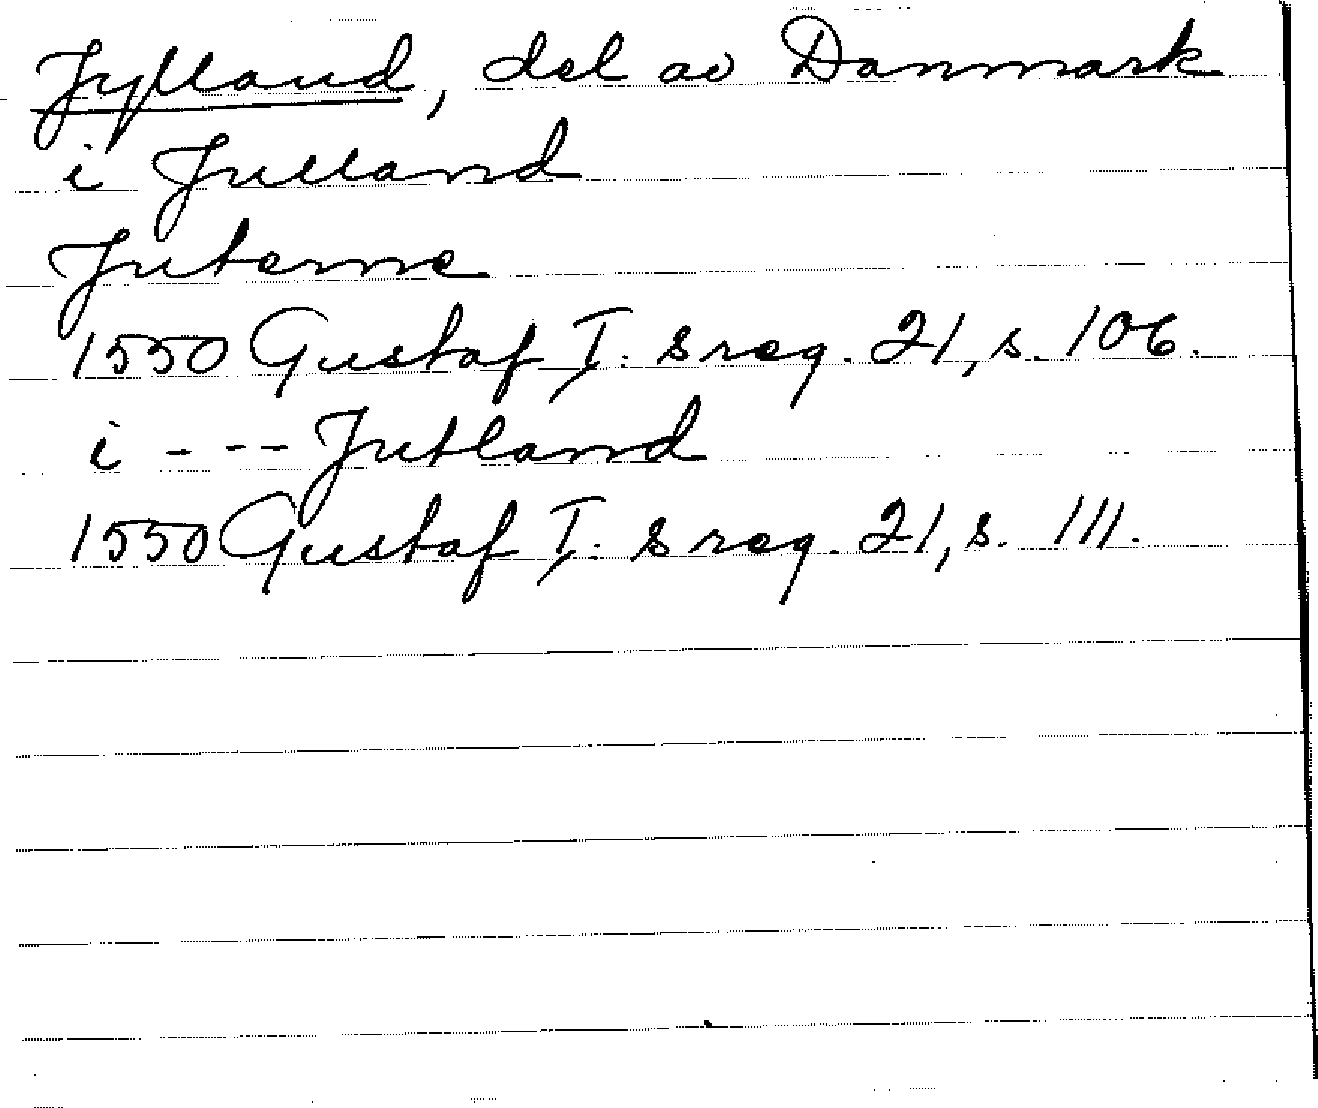 Jylland, del av Danmark
i Julland
Juterne
1550 Gustaf I:s reg. 21, s. 106.
i - - - Jutland
1550 Gustaf I:s reg. 21, s. 111.